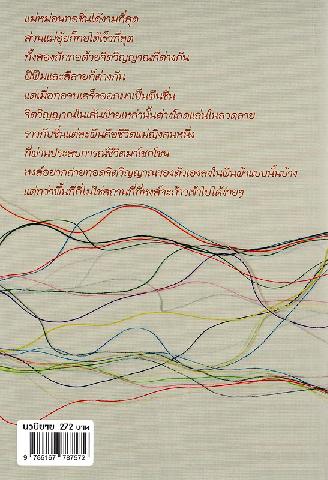 แม่หม่อนทอซิ่นได้งามที่สุด
ส่วนแม่อุ้ยก็ทอได้เร็วที่สุด
ทั้งสองถักทอด้วยจิตวิญญาณที่ต่างกัน
ฝีฟืมและสีลายก็ต่างกัน
แต่เมื่อทอจนเสร็จออกมาเป็นผืนซิ่น
จิตวิญญาณในเส้นฝ้ายเหล่านั้นต่างโลดแล่นในลวดลาย
ราวกับซิ่นแต่ละผืนคือชีวิตแม่ญิงคนหนึ่ง
ที่ผ่านประสบการณ์ชีวิตมาโชกโชน
หงส์อยากถ่ายทอดจิตวิญญาณของตัวเองลงในผืนผ้าแบบนั้นบ้าง
แต่ทว่าพื้นที่กี่ไม่ใช่สถานที่ที่หงส์จะก้าวเข้าไปได้ง่ายๆ
นวนิยาย 272 บาท
9 786167 787572